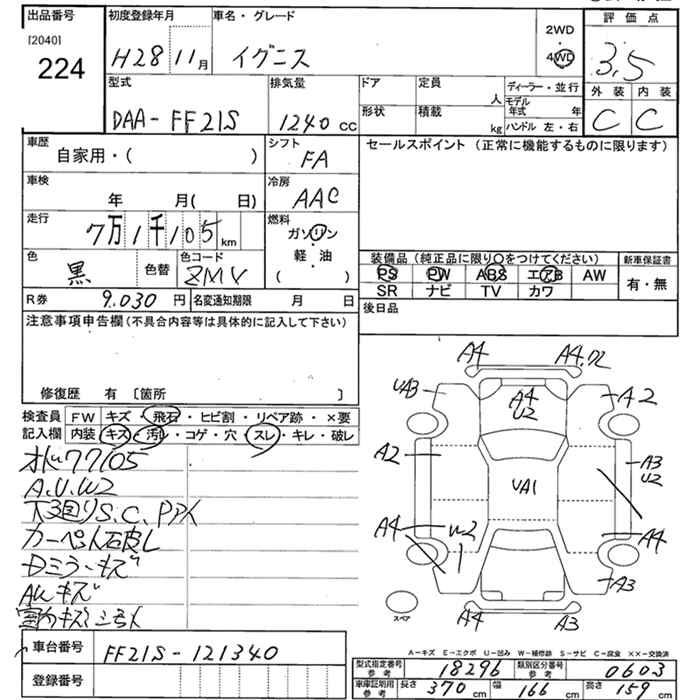 出品番号
[2040]
224
初度登録年月
H28 11月
車名・グレード
イグニス
2WD
4WD
評価点
3.5
外装 内装
C C
型式
DAA-FF21S
排気量
1240 cc
ドア
定員
人
形状
積載
kg
ディーラー・並行
モデル年式 年
ハンドル 左・右
車歴
自家用・( )
シフト
FA
車検
年 月( 日)
冷房
AAC
走行
7万1千105km
燃料
ガソリン
軽・油
( )
色
黒
色替
色コード
ZMV
R券 9.030 円
名変通知期限 月 日
セールスポイント (正常に機能するものに限ります)
装備品(純正品に限り○をつけてください)
PS PW ABS エアB AW
SR ナビ TV カワ
新車保証書
有・無
後日品
注意事項申告欄(不具合内容等は具体的に記入して下さい)
修復歴 有 〔箇所 〕
検査員記入欄
FW キズ・飛石・ヒビ割・リペア跡・×要
内装 キズ・汚レ・コゲ・穴・スレ・キレ・破レ
77105
A.U.W2
下回りS.C.
Dミラーキズ
AWキズ
A4 A4
UA3 A4 U2 A2
A2 UA1 A3 U2
A4 W2 A4
A3
A4 A3
スペア
A-キズ E-エクボ U-凹み W-補修跡 S-サビ C-腐食 ××-交換済
車台番号 FF21S-121340
登録番号
型式指定番号 参考 18296
類別区分番号 参考 0603
車庫証明用 参考 長さ 370 cm 幅 166 cm 高さ 159 cm